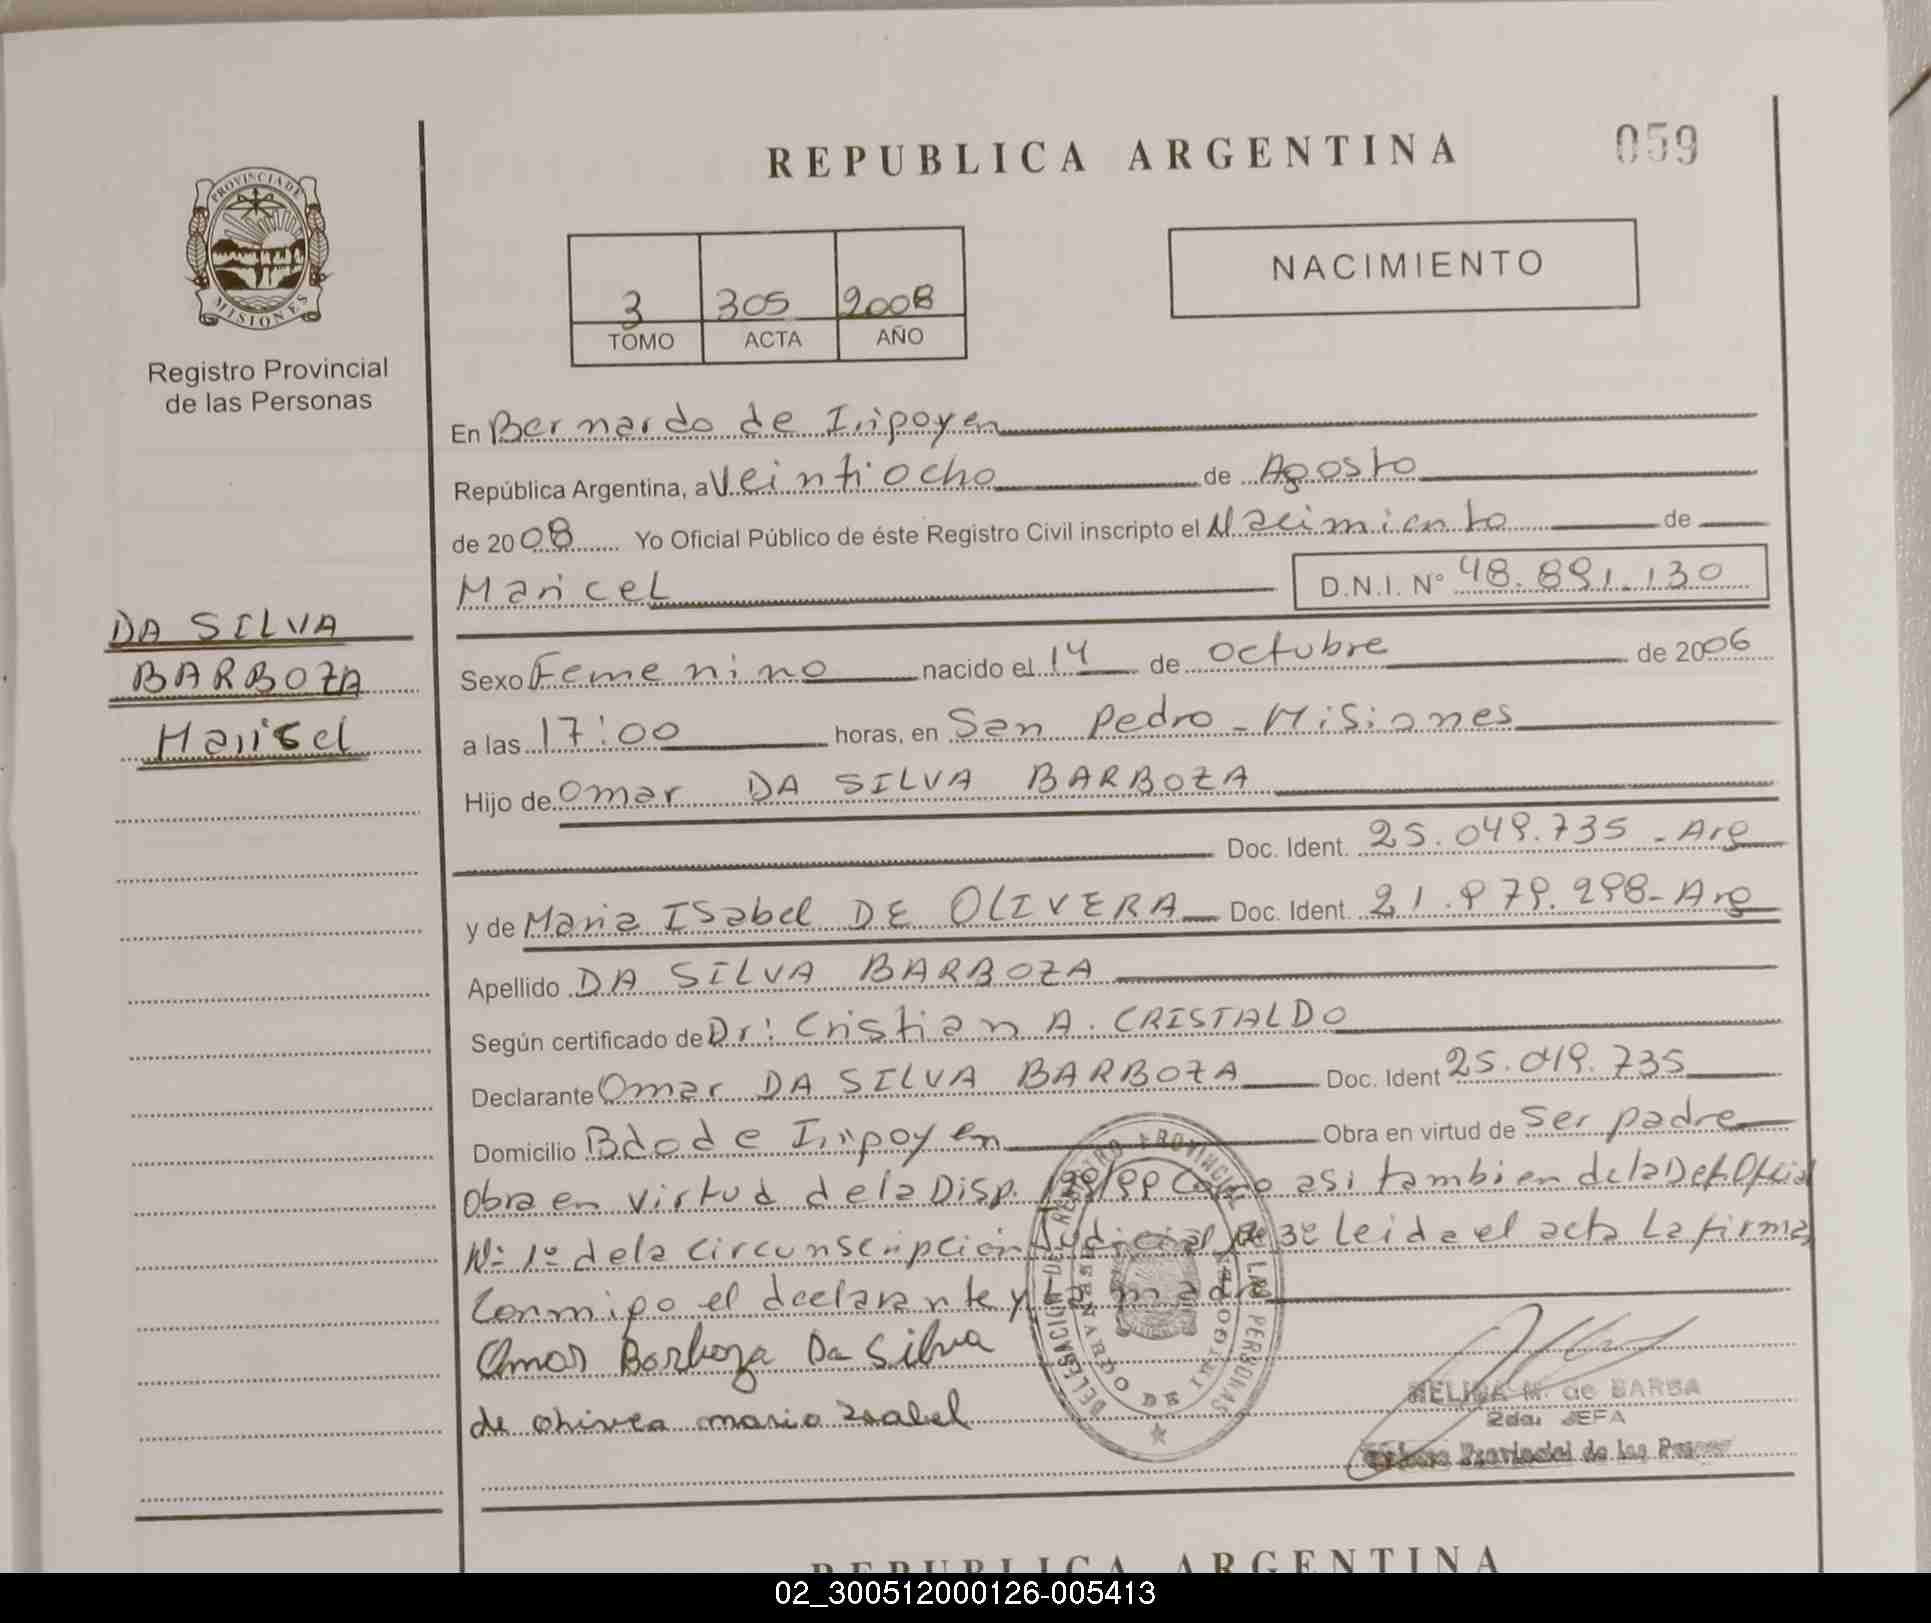 REPUBLICA ARGENTINA
059
PROVINCIA DE
MISIONES
Registro Provincial
de las Personas
3 305 2008
TOMO ACTA AÑO
NACIMIENTO
En Bernardo de Irigoyen
República Argentina, a Veintiocho de Agosto
de 2008 Yo Oficial Público de éste Registro Civil inscripto el Nacimiento de
Maricel D.N.I. Nº 48.891.130
DA SILVA
BARBOZA
Marisel
Sexo Femenino nacido el 14 de Octubre de 2006
a las 17:00 horas, en San Pedro - Misiones
Hijo de Omar DA SILVA BARBOZA
Doc. Ident. 25.049.735 - Arg
y de Maria ISabel DE OLIVERA Doc. Ident. 21.979.298 - Arg
Apellido DA SILVA BARBOZA
Según certificado de Dr: Cristian A. CRISTALDO
Declarante Omar DA SILVA BARBOZA Doc. Ident 25.049.735
Domicilio Bdo de Irigoyen Obra en virtud de Ser padre
Obra en virtud de la Disp. 199/99 Como asi tambien de la Def. Oficial
Nº 1º de la circunscripción Judicial de 3º Leida el acta La firma
Conmigo el declarante y La madre
Omar Barboza Da Silva
de olivera maria Isabel
DELEGACION DEL REGISTRO PROVINCIAL DE LAS PERSONAS
BERNARDO DE IRIGOYEN
M. de BARBA
2da. JEFA
Provincial de las
REPUBLICA ARGENTINA
02_300512000126-005413